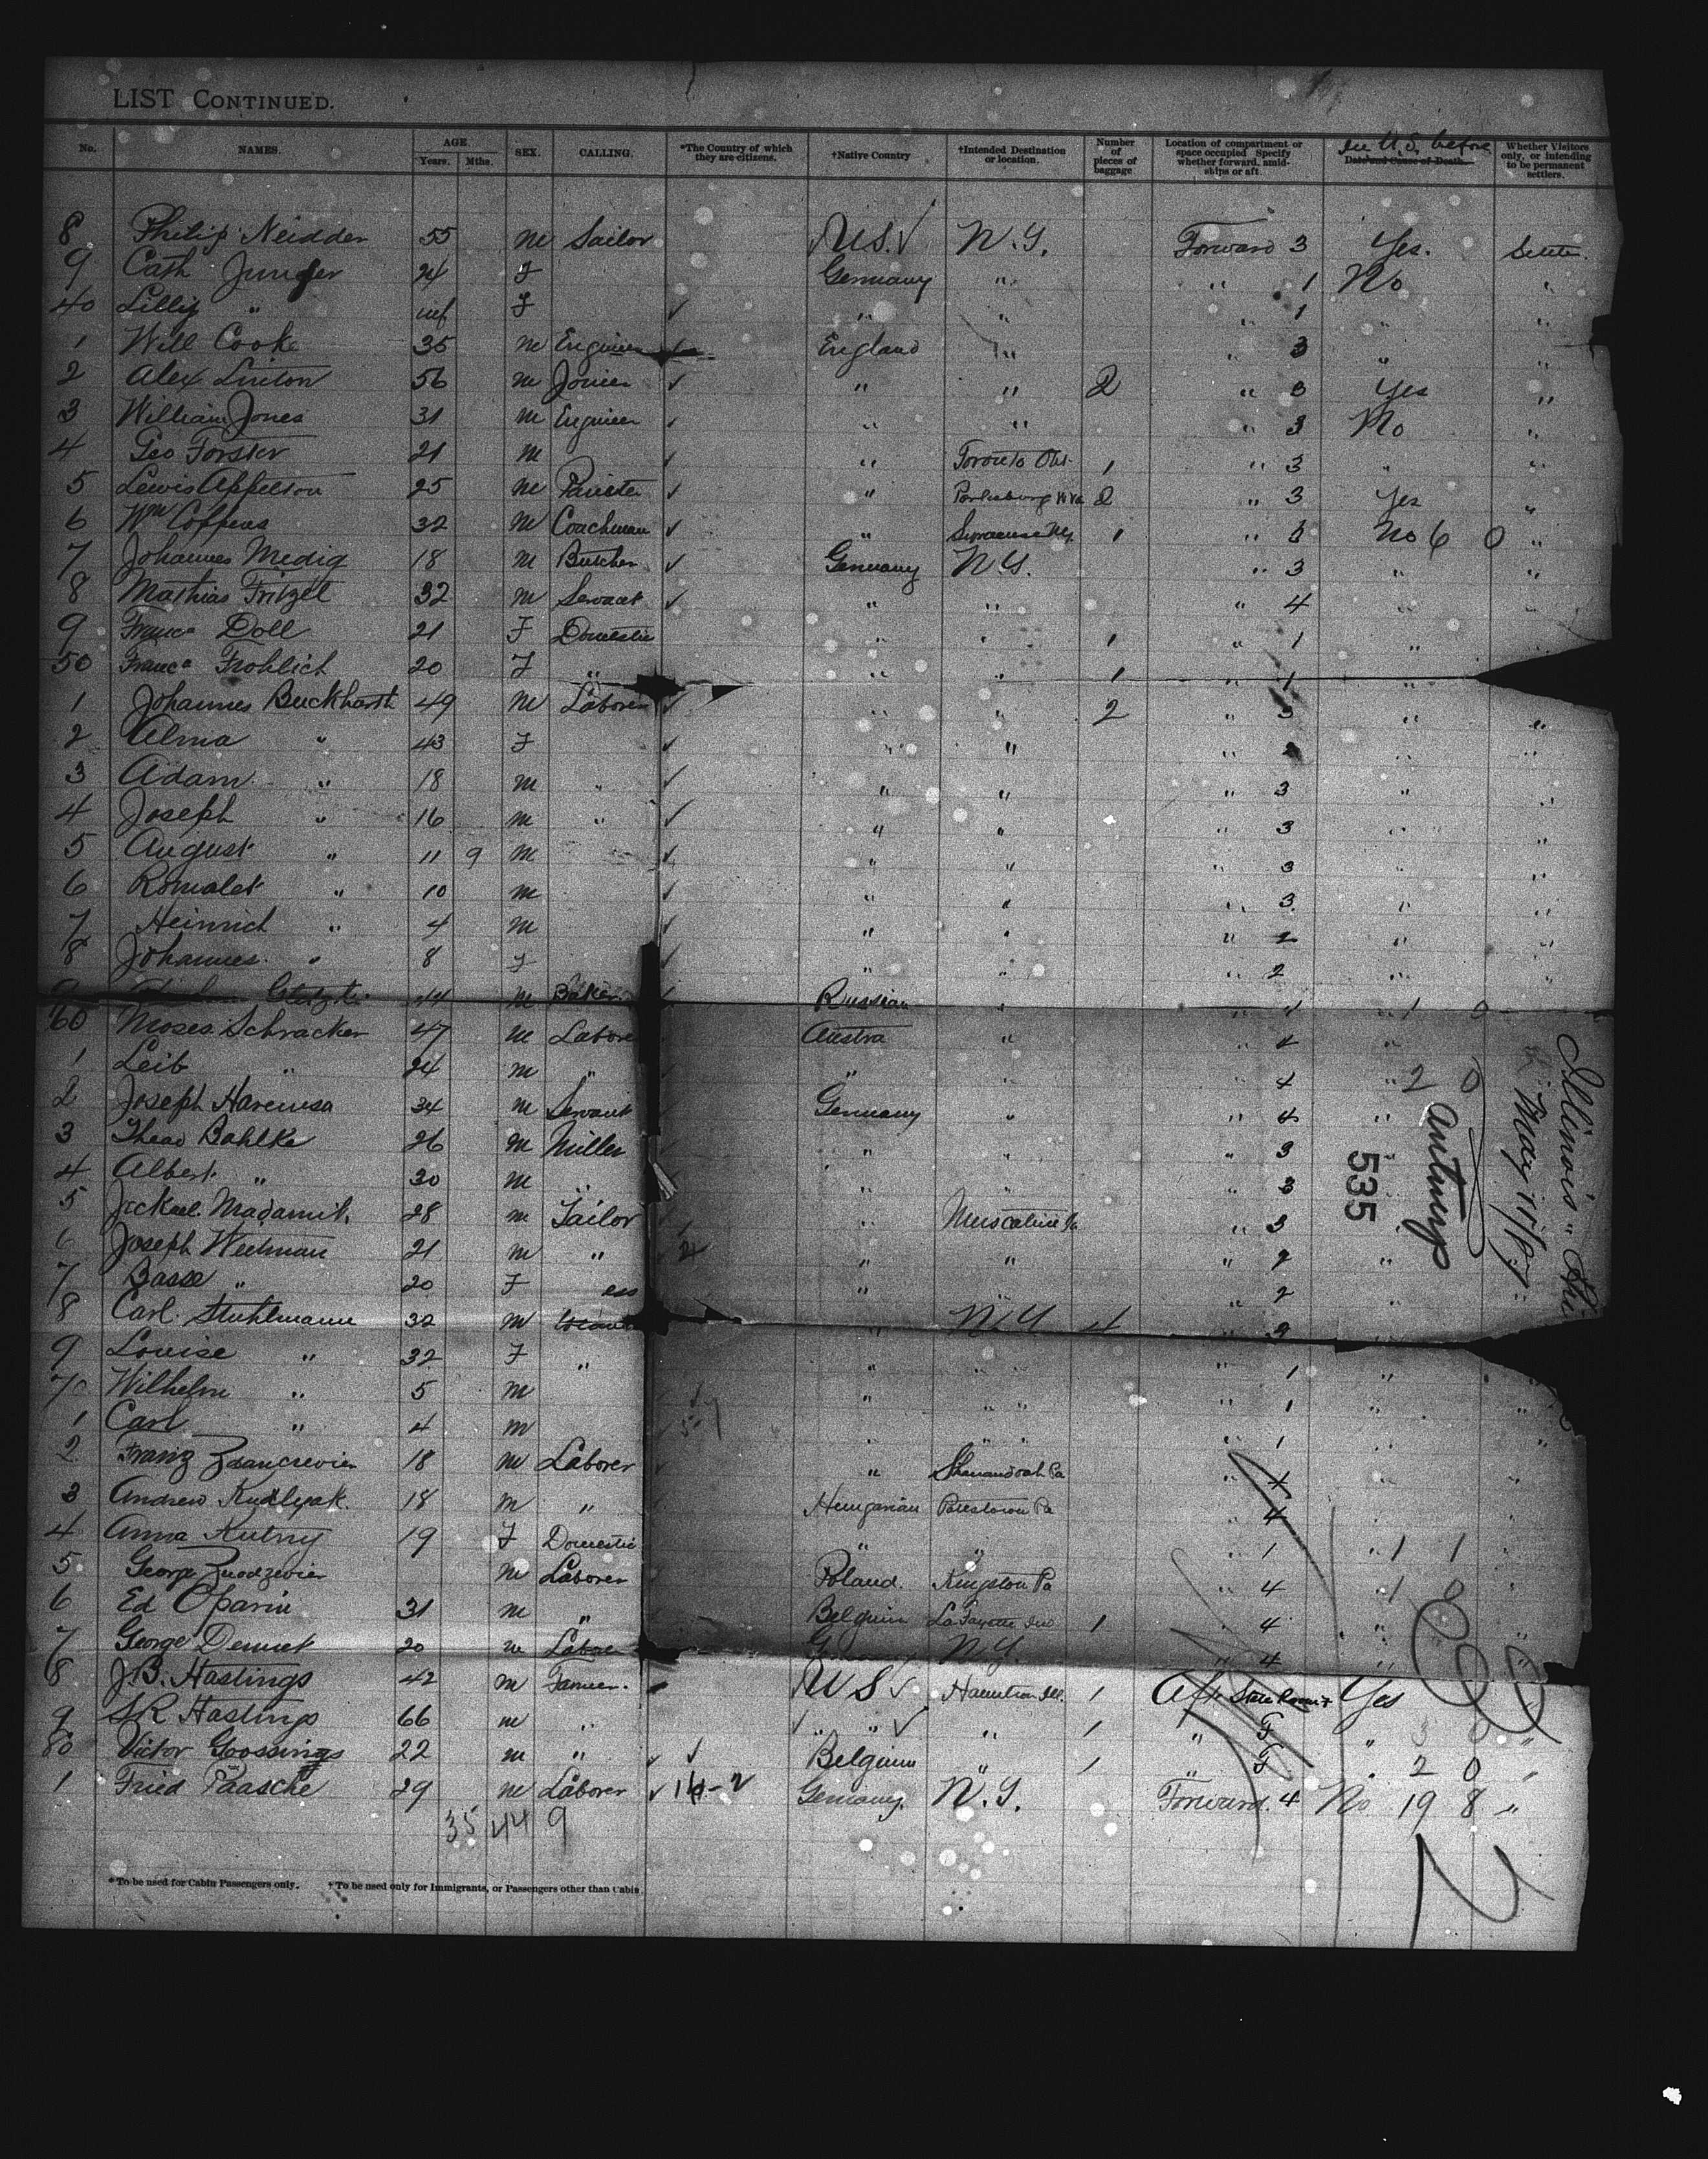 LIST CONTINUED.
No. NAMES. AGE Years. Mths. SEX. CALLING. *The Country of which they are citizens. †Native Country †Intended Destination or location. Number of pieces of baggage Location of compartment or space occupied Specify whether forward, amid-ships or aft In U.S. before Date and Cause of Death. Whether Visitors only, or intending to be permanent settlers.
8 Philip Neidder 55 m Sailor U.S. ✓ N.Y. Forward 3 Yes.
9 Cath Junger 24 F Germany " " 1 No "
40 Lilly " inf F ✓ " " " 1 " "
1 Will Cooke 35 m Engineer England " " 3 " "
2 Alex Linton 56 m Joiner ✓ " " 2 " 3 Yes "
3 William Jones 31 m Engineer ✓ " " " 3 No "
4 Geo Forster 21 m ✓ " Toronto Ont. 1 " 3 " "
5 Lewis Appelson 25 m Painter ✓ " 2 " 3 Yes "
6 Wm Coppens 32 m Coachman ✓ " Syracuse N.Y. 1 " 3 No 6 0 "
7 Johannes Medig 18 m Butcher ✓ Germany N.Y. " 3 " "
8 Mathias Fritzel 32 m Servant ✓ " " " 4
9 Franca Doll 21 F Domestic " " 1 " 1 "
50 Franca Frohlich 20 F " " " 1 " 1 "
1 Johannes Buckhardt 49 m Laborer ✓ " " 2 " 3 " "
2 Alma " 43 F ✓ " " " 2 " "
3 Adam " 18 m " ✓ " " " 3 " "
4 Joseph " 16 m " ✓ " " " 3 " "
5 August " 11 9 m ✓ " " " 3 "
6 Romalet " 10 m ✓ " " " 3 " "
7 Heinrich " 4 m ✓ " " " 2 " "
8 Johannes " 8 F ✓ " " " 2 " "
44 m Baker Russian " " 4 1 0
60 Moses Schracker 47 m Laborer Austra " " 4 "
1 Leib " 24 m " " " " 4 " 2 0
2 Joseph Haremsa 34 m Servant Germany " " 4 "
3 Thead Bahlke 26 m Miller " " " 3 "
4 Albert " 30 m " " " " 3
5 Jeckael Madamit 28 m Tailor " Muscatine Ia " 3 "
6 Joseph Weitman 21 m " " " " 2 "
7 Basse " 20 F ess " " 2 "
8 Carl Stuhlmann 32 m " N.Y. 4 2 "
9 Louise " 32 F " " " " 1 "
70 Wilhelm " 5 m " " " 1 " "
1 Carl " 4 m " " " 1 " "
2 Franz 18 m Laborer " Shenandoah Pa " 4 "
3 Andrew Kudlyak 18 m " Hungarian Pottstown Pa 4
4 Anna Kutny 19 F Domestic " " " 1 " 1 1
5 George m Laborer Poland. Kingston Pa " 4 " 1 0
6 Ed Oparin 31 m " Belgium LaFayette Ind 1 " 4 "
7 George Dennet 20 m Labore N.Y. " 4 "
8 J.B. Hastings 42 m Farmer. U S ✓ Hamilton Ill. 1 Aft State Room F Yes
9 S R Hastings 66 m " ✓ " " ✓ " 1 " F " 3 0 "
80 Victor Goossings 22 m " ✓ ✓ Belgium " 1 " F " 2 0 "
1 Fried Paasche 29 m Laborer ✓ 14-2 Germany. N.Y. Forward. 4 No 19 8 "
35 44 9
Illinois
May 17/87
Antwerp
535
*To be used for Cabin Passengers only. †To be used only for Immigrants, or Passengers other than Cabin.